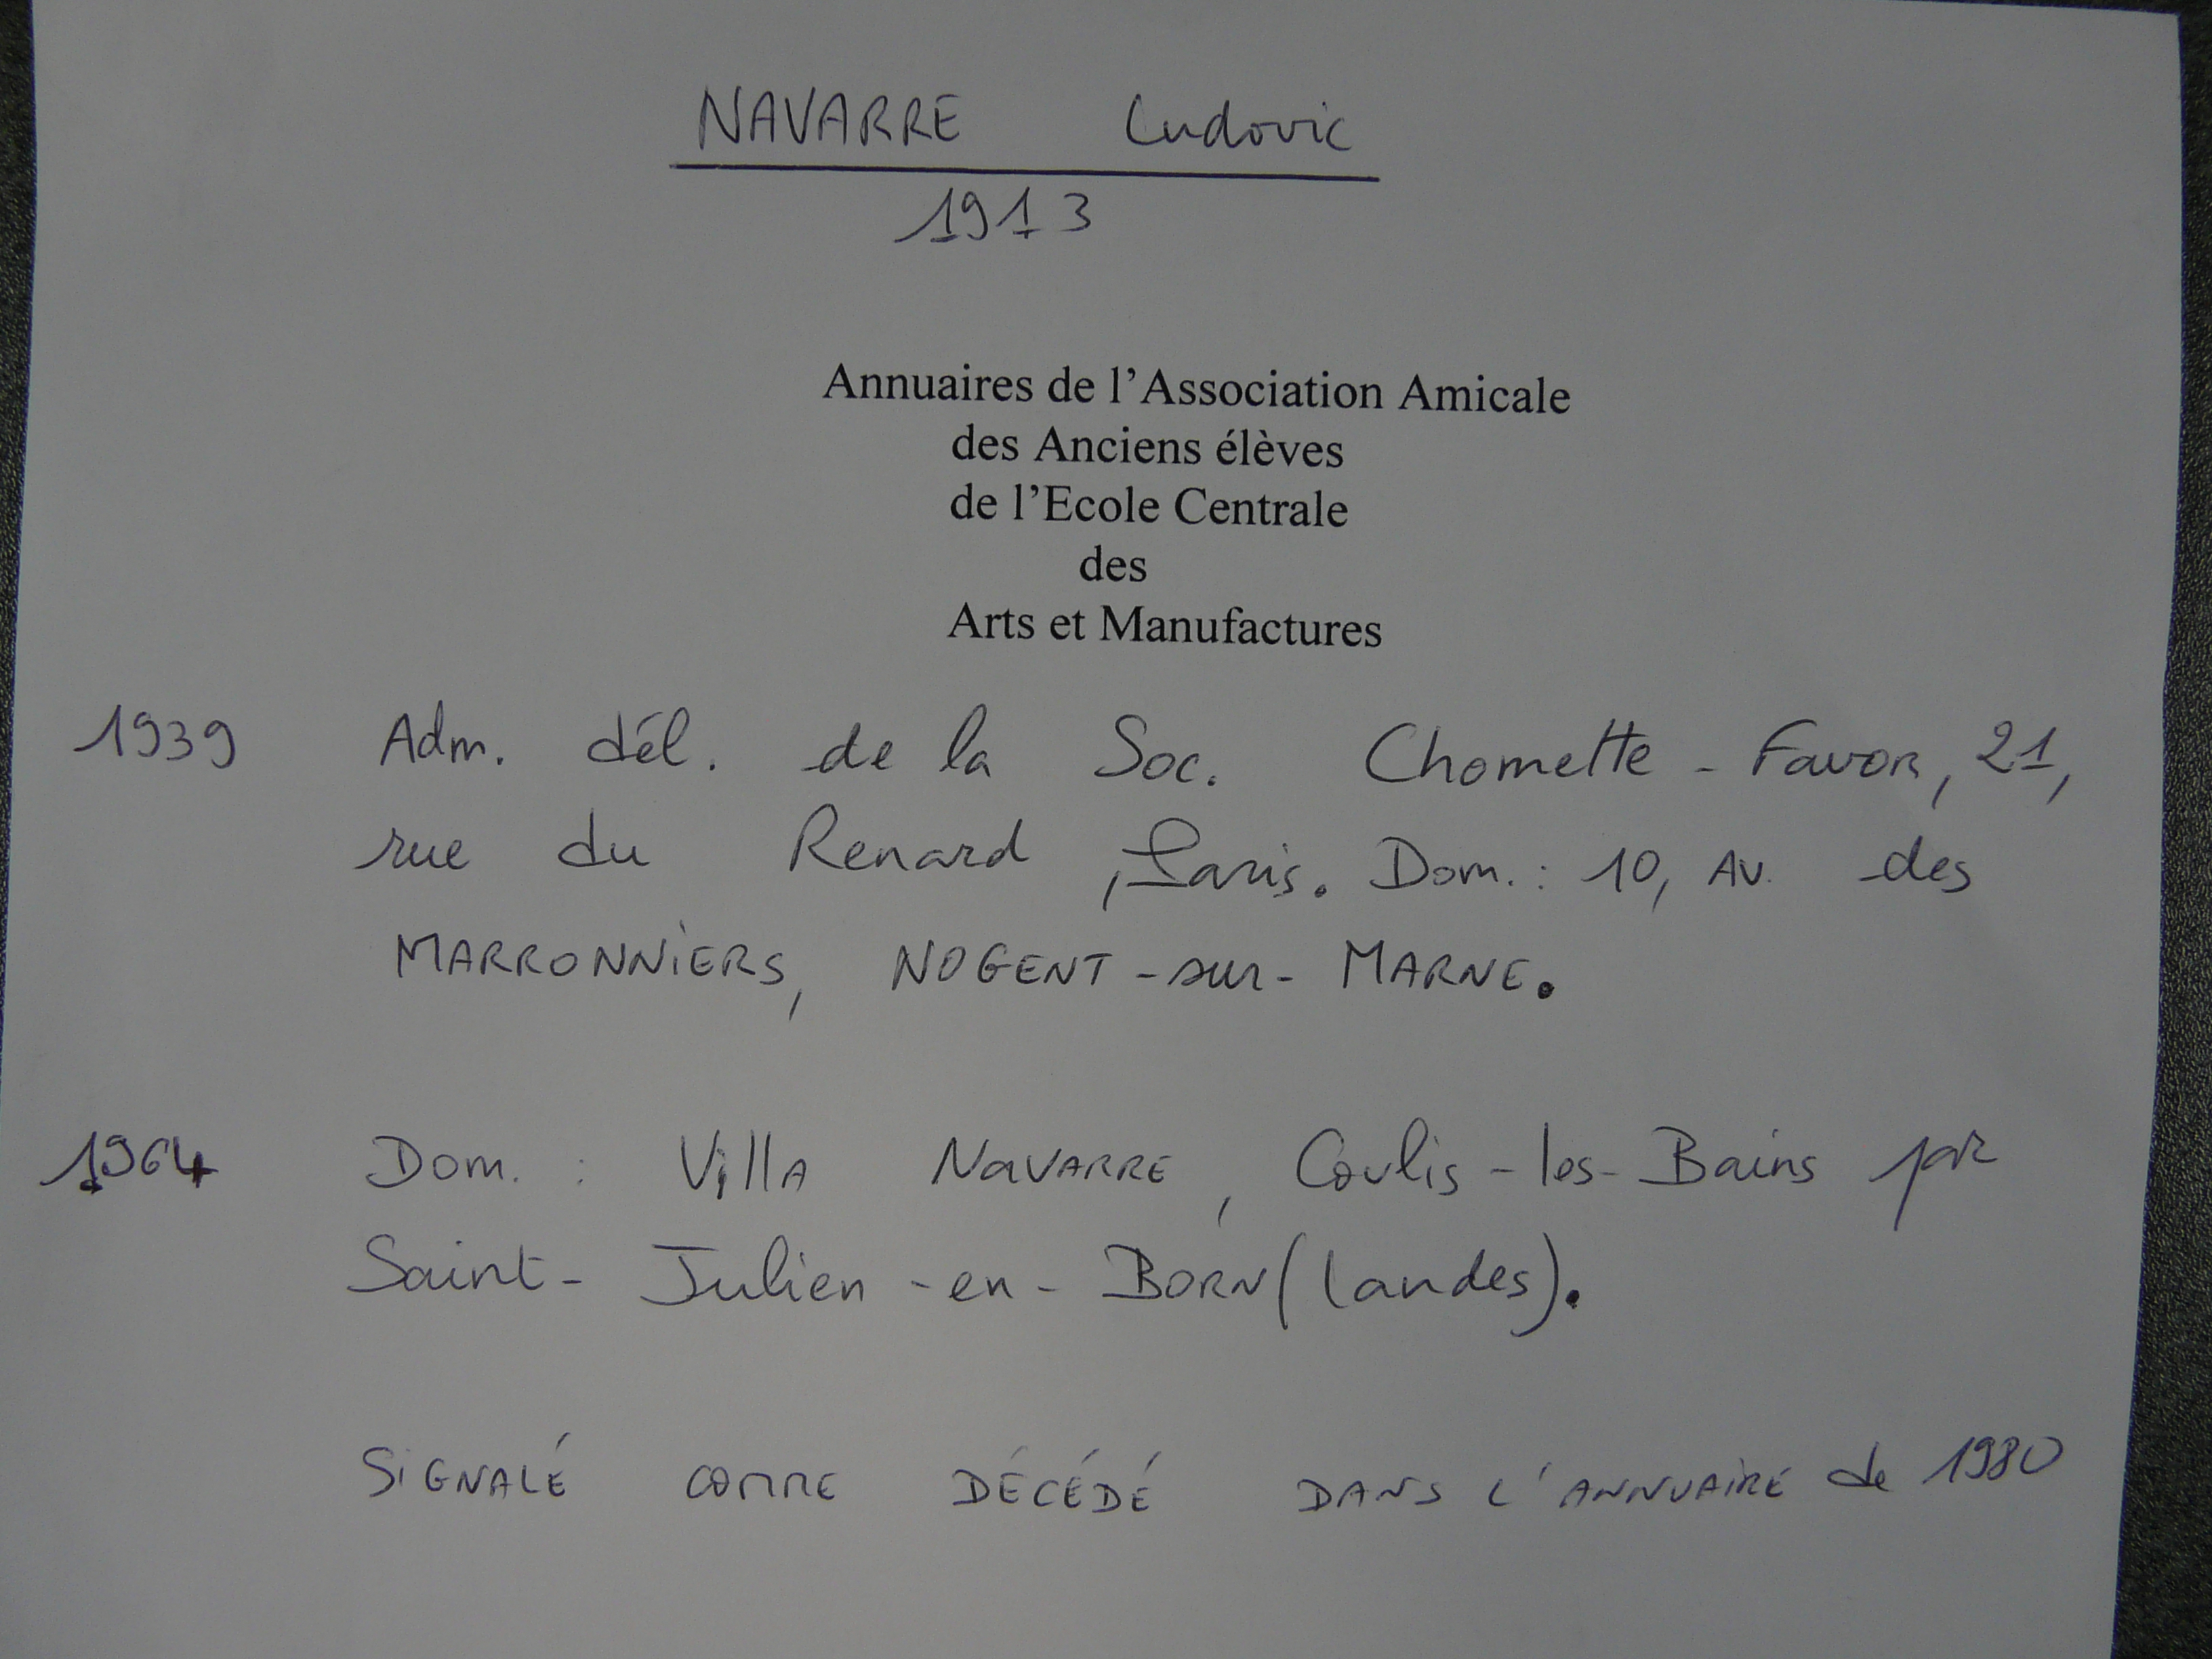 NAVARRE Ludovic
1913
Annuaires de l'Association Amicale
des Anciens élèves
de l'Ecole Centrale
des
Arts et Manufactures
1939 Adm. dél. de la Soc. Chomette - Favor, 21,
rue du Renard, Paris. Dom. : 10, Av. des
MARRONNiERS, NOGENT-sur-MARNE.
1964 Dom. : VillA NaVARRE, Coulis-les-Bains par
Saint-Julien-en-BORN (Landes).
SiGNALÉ COMME DÉCÉDÉ DANS L'ANNUAiRE de 1980